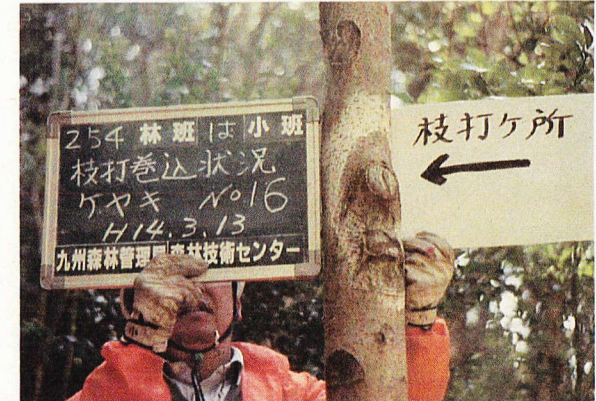 254 林班 は 小班
枝打巻込状況
ケヤキ No16
H14.3.13
九州森林管理局森林技術センター
枝打ケ所